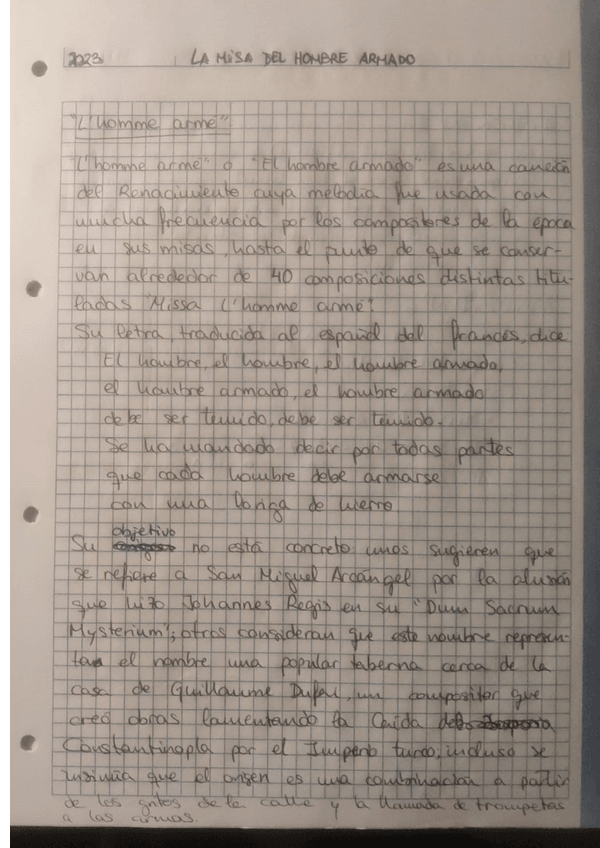 2023 LA MISA DEL HOMBRE ARMADO
"L'homme armé"
"L'homme armé" o "El hombre armado" es una canción
del Renacimiento cuya melodía fue usada con
mucha frecuencia por los compositores de la época
en sus misas, hasta el punto de que se conser-
van alrededor de 40 composiciones distintas titu-
ladas "Missa L'homme armé".
Su letra, traducida al español del francés, dice
El hombre, el hombre, el hombre armado,
el hombre armado, el hombre armado
debe ser temido, debe ser temido.
Se ha mandado decir por todas partes
que cada hombre debe armarse
con una loriga de hierro
objetivo
Su no está concreto unos sugieren que
se refiere a San Miguel Arcángel por la alusión
que hizo Johannes Regis en su "Dum Sacrum
Mysterium"; otros consideran que este nombre represen-
tan el nombre una popular taberna cerca de la
casa de Guillaume Dufay, un compositor que
creó obras lamentando la Caída de
Constantinopla por el Imperio turco, incluso se
insinúa que el origen es una combinación a partir
de los gritos de la calle y la llamada de trompetas
a las armas.